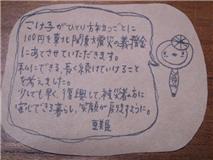 こけ子がひとり古わつごとに
100円を東北関東大震災の義援金
にあてさせていただきます。
私にできる、長く続けていけること
を考えました。
少しでも早く復興して、被災者の方に
安心できる暮らし、笑顔が戻りますように。